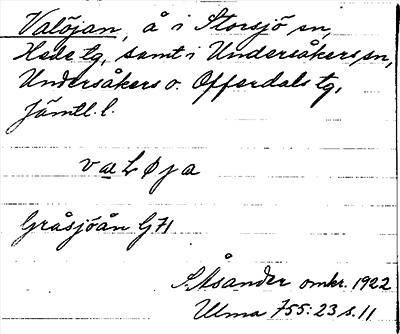 Valöjan, å i Storsjö sn,
Hede tg, samt i Undersåkers sn,
Undersåkers o. Offerdals tg,
Jämtl. l.
v æ L ø j a
Gråsjöån G71
S. Åsander omkr. 1922
Ulma 755:23 s. 11